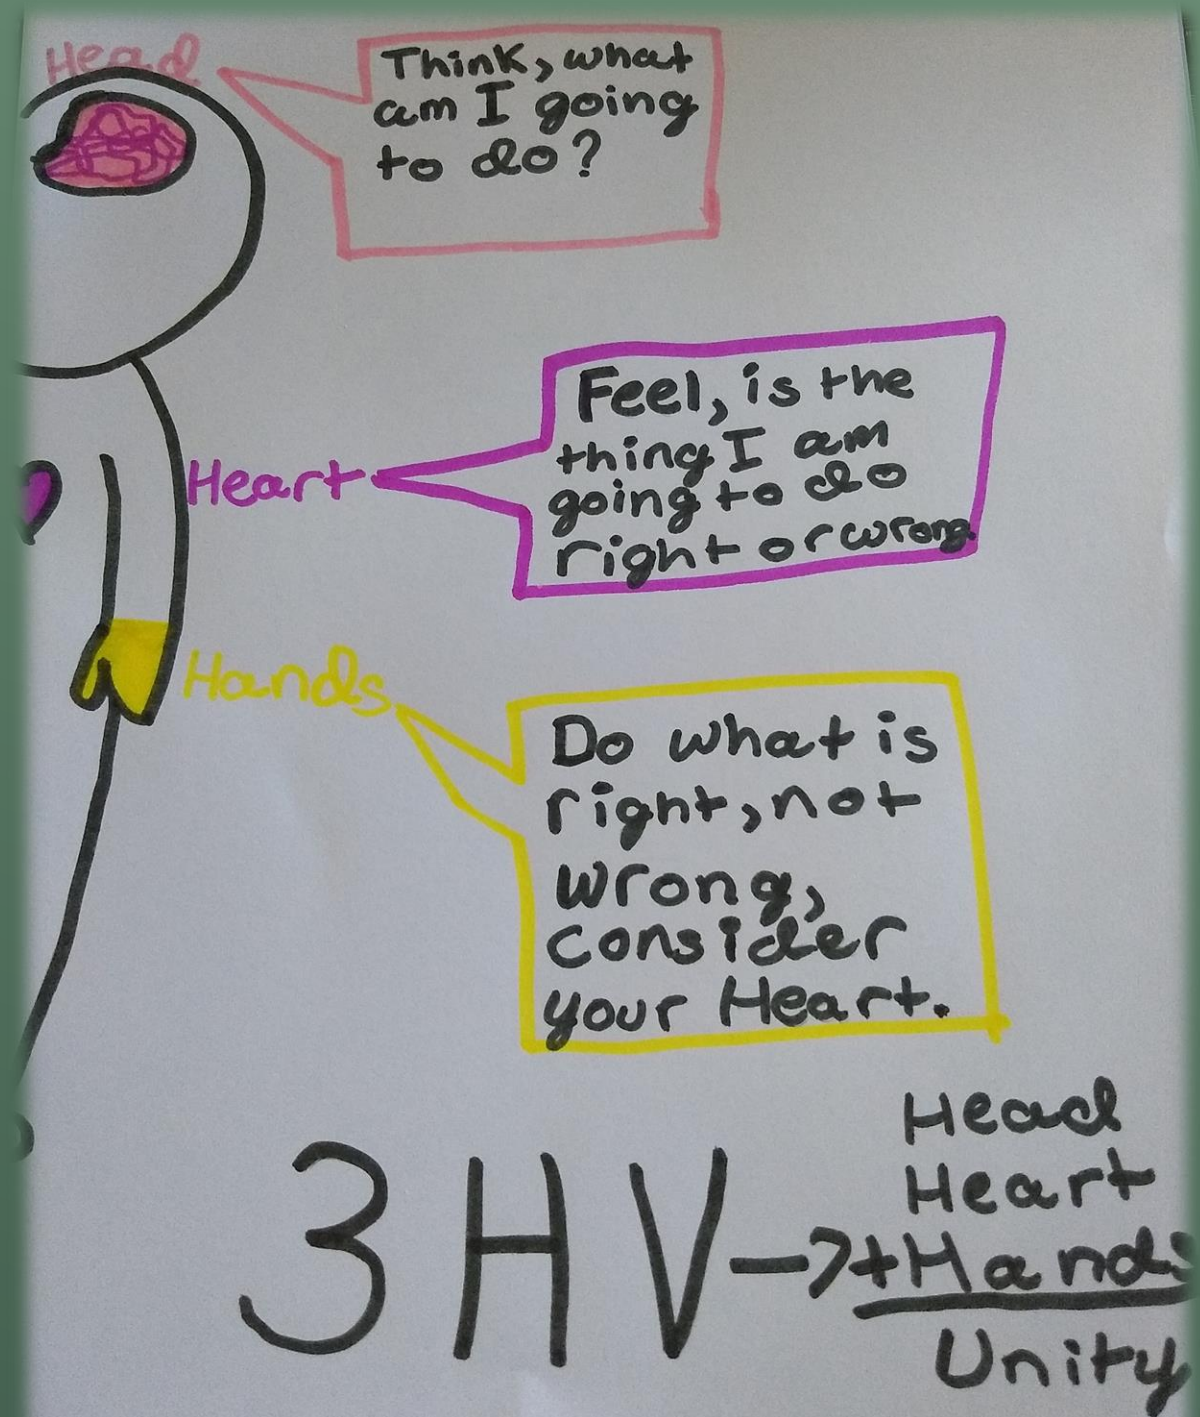 Head
Think, what
am I going
to do?
Heart
Feel, is the
thing I am
going to do
right or wrong.
Hands
Do what is
right, not
wrong,
consider
your Heart.
3HV→
Head
Heart
+Hands
Unity